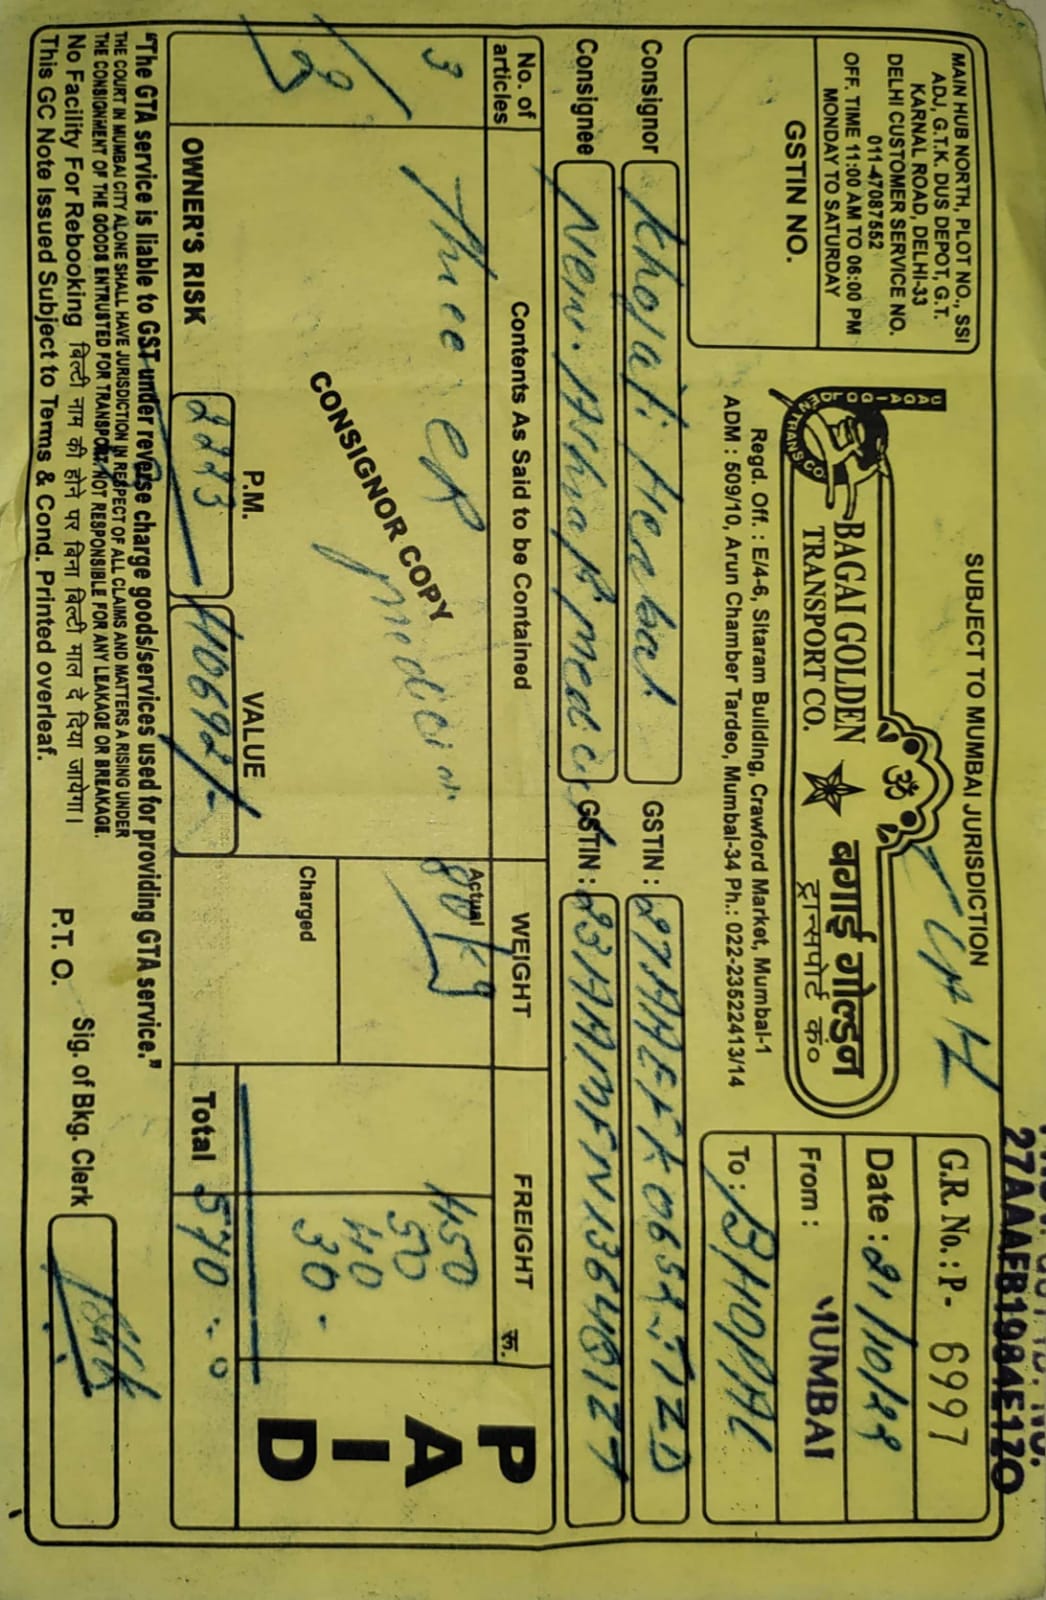 SUBJECT TO MUMBAI JURISDICTION
27AAAFB1984E1ZO
MAIN HUB NORTH, PLOT NO., SSI
ADJ, G.T.K. DUS DEPOT, G.T.
KARNAL ROAD, DELHI-33
DELHI CUSTOMER SERVICE NO.
011-47087552
OFF. TIME 11:00 AM TO 06:00 PM
MONDAY TO SATURDAY
GSTIN NO.
BAGAI GOLDEN
TRANSPORT CO.
ॐ
बगाई गोल्डन
ट्रान्सपोर्ट कं०
Regd. Off. : E/4-6, Sitaram Building, Crawford Market, Mumbai-1
ADM : 509/10, Arun Chamber Tardeo, Mumbai-34 Ph.: 022-23522413/14
G.R. No.: P- 6997
Date : 21/10/22
From : MUMBAI
To : BHOPAL
Consignor Khojati Herbal GSTIN :
Consignee New GSTIN :
No. of articles
Contents As Said to be Contained
WEIGHT
FREIGHT
रू.
3
Three
medicin
CONSIGNOR COPY
Actual
80 kg
Charged
450
50
40
30
PAID
OWNER'S RISK
P.M.
2223
VALUE
40692/-
Total 570
"The GTA service is liable to GST under reverse charge goods/services used for providing GTA service."
THE COURT IN MUMBAI CITY ALONE SHALL HAVE JURISDICTION IN RESPECT OF ALL CLAIMS AND MATTERS A RISING UNDER
THE CONSIGNMENT OF THE GOODS ENTRUSTED FOR TRANSPORT. NOT RESPONSIBLE FOR ANY LEAKAGE OR BREAKAGE.
No Facility For Rebooking बिल्टी नाम की होने पर बिना बिल्टी माल दे दिया जायेगा।
This GC Note Issued Subject to Terms & Cond. Printed overleaf.
P.T.O.
Sig. of Bkg. Clerk